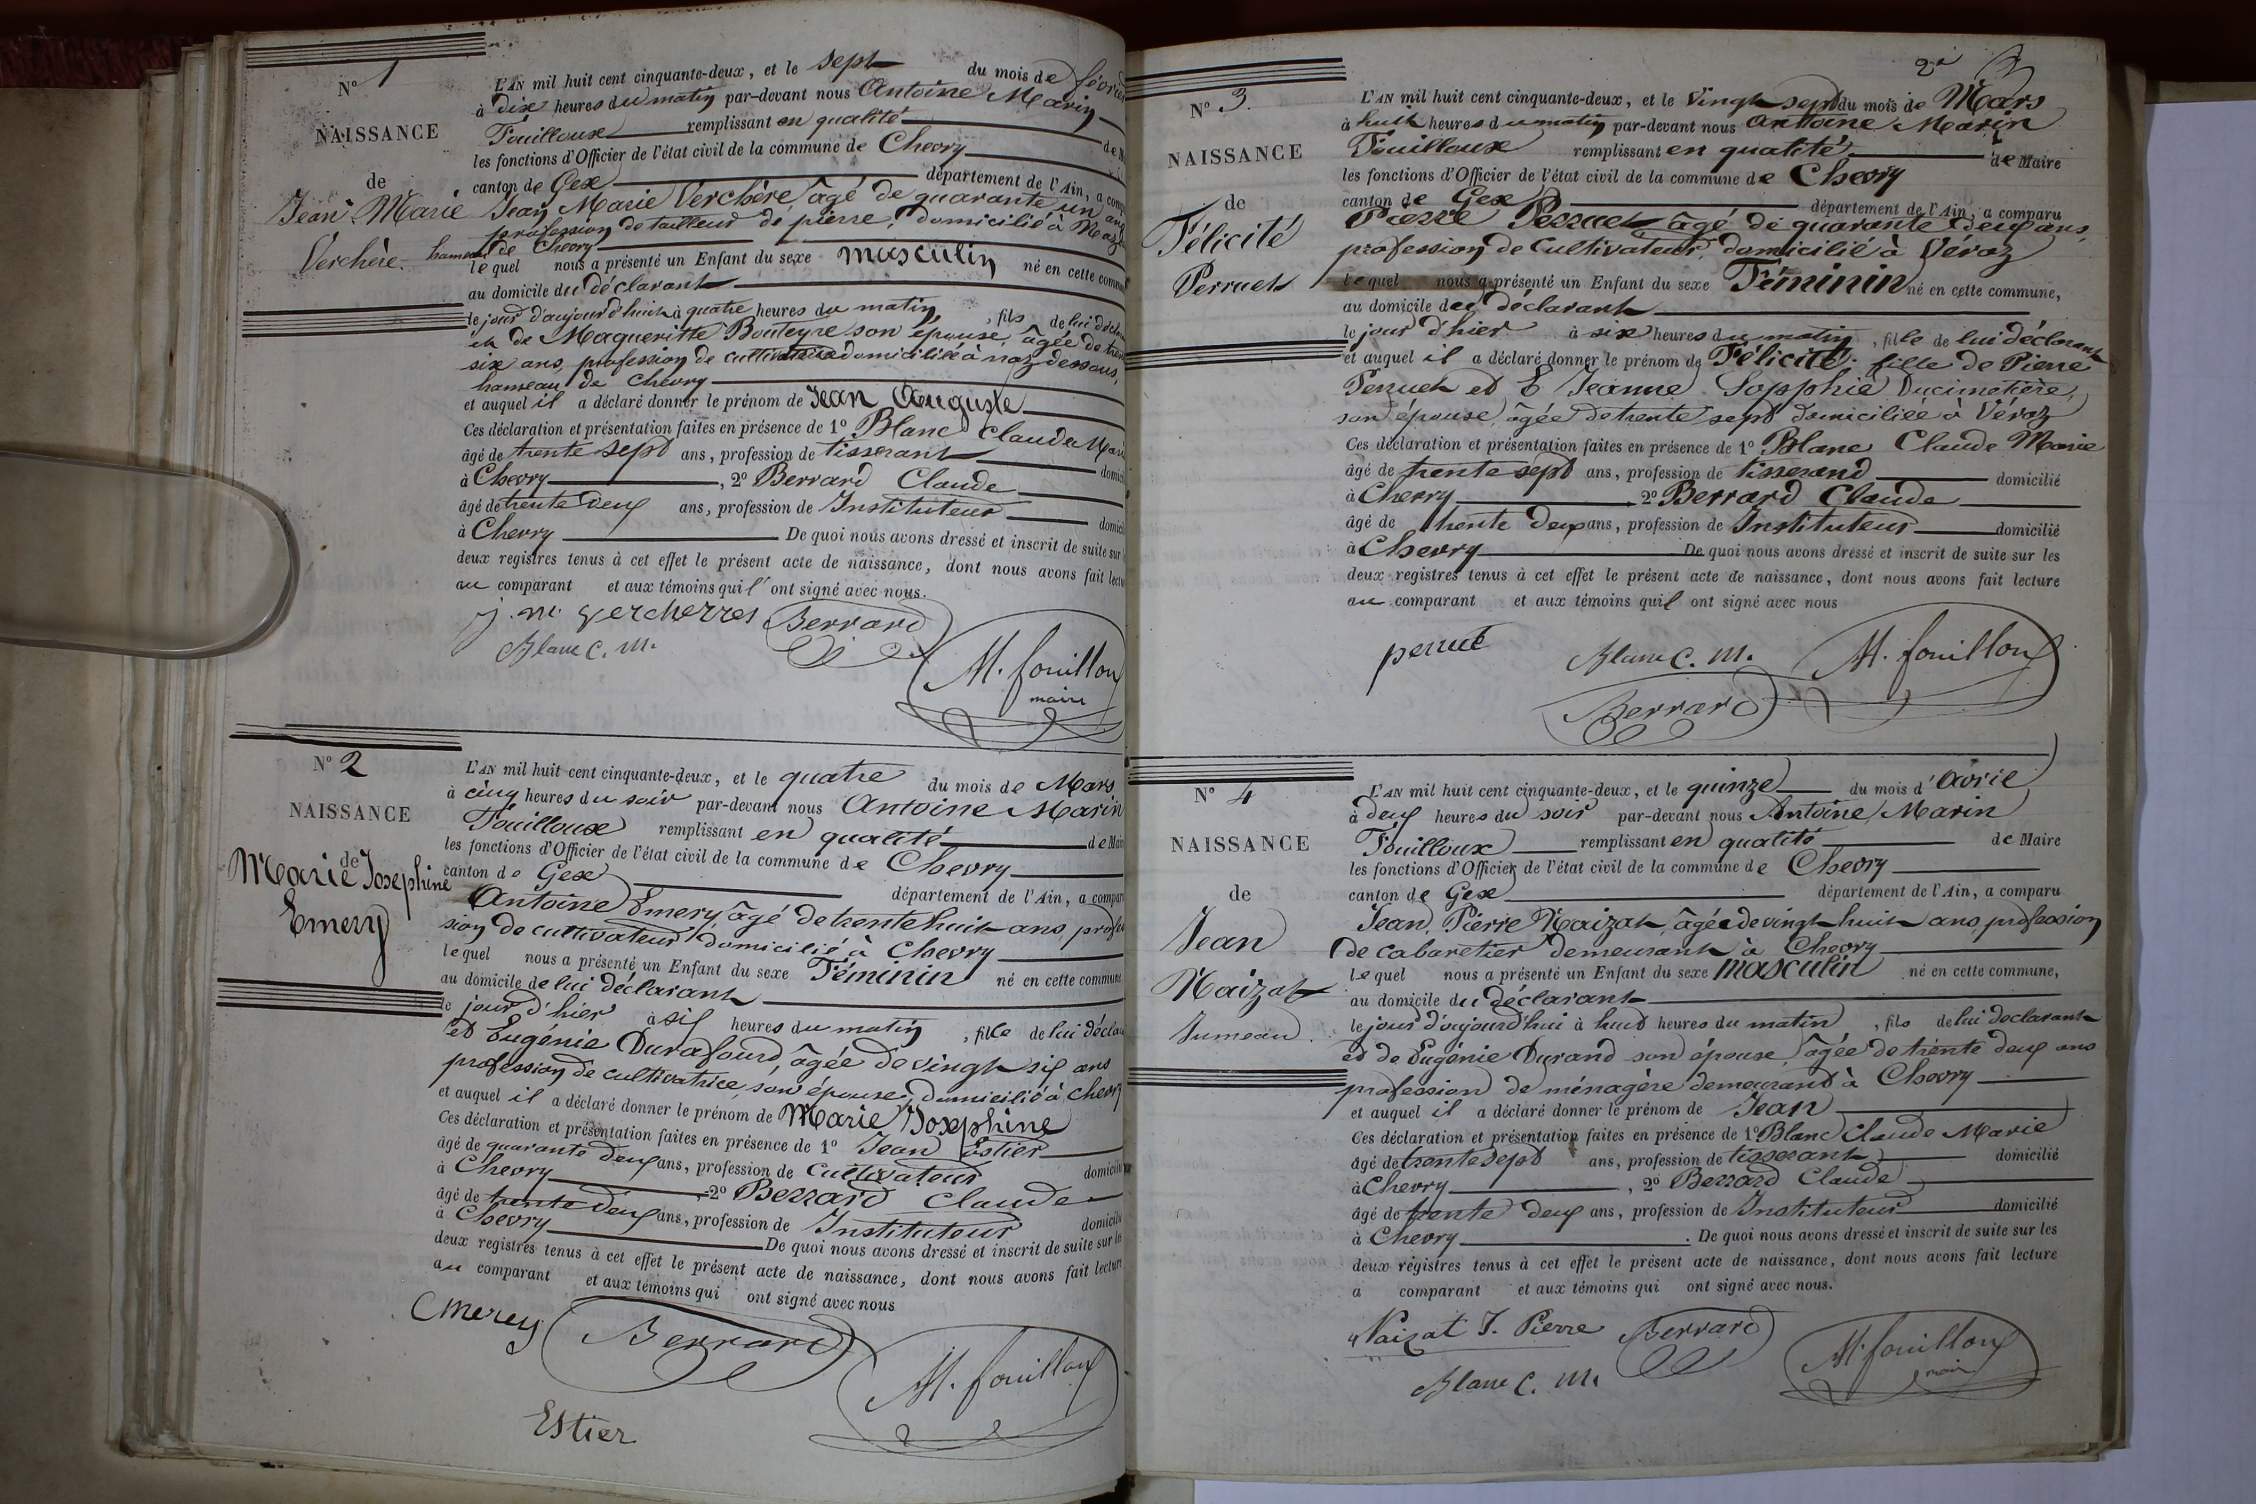 Nº 1
NAISSANCE
de
Jean Marie
Verchère.
L'AN mil huit cent cinquante-deux, et le sept du mois de février
à dix heures du matin par-devant nous Antoine Marin
Fouilloux remplissant en qualité de
les fonctions d'Officier de l'état civil de la commune de Chevry
canton de Gex département de l'Ain, a
Jean Marie Verchère, âgé de quarante un ans
profession de tailleur de pierre, domicilié à
hameau de Chevry
lequel nous a présenté un Enfant du sexe masculin né en cette
au domicile du déclarant
le jour d'aujourd'hui à quatre heures du matin, fils de lui
et de Magueritte Bouteyre son épouse, âgée de
six ans, profession de domiciliée à naz dessous,
hameau de Chevry
et auquel il a déclaré donner le prénom de Jean Auguste
Ces déclaration et présentation faites en présence de 1º Blanc Claude
âgé de trente sept ans, profession de tisserant
à Chevry, 2º Berrard Claude
âgé de trente deux ans, profession de Instituteur
à Chevry De quoi nous avons dressé et inscrit de suite sur
deux registres tenus à cet effet le présent acte de naissance, dont nous avons fait
au comparant et aux témoins qui l' ont signé avec nous.
j. m. vercherres Berrard
Blanc C. M.
M. fouilloux
maire
Nº 2
NAISSANCE
de
Marie Josephine
Emery
L'AN mil huit cent cinquante-deux, et le quatre du mois de Mars
à cinq heures du soir par-devant nous Antoine Marin
Fouilloux remplissant en qualité de
les fonctions d'Officier de l'état civil de la commune de Chevry
canton de Gex département de l'Ain, a
Antoine Emery âgé de trente huit ans,
sion de cultivateur domicilié à Chevry
lequel nous a présenté un Enfant du sexe Féminin né en cette commune
au domicile de lui déclarant
le jour d'hier à six heures du matin, fille de lui
et Eugénie Durafourd, âgée de vingt six ans
profession de cultivatrice, son épouse, domicilié à Chevry
et auquel il a déclaré donner le prénom de Marie Josephine
Ces déclaration et présentation faites en présence de 1º Jean Estier
âgé de quarante deux ans, profession de cultivateur
à Chevry 2º Berrard Claude
âgé de trente deux ans, profession de Instituteur
à Chevry De quoi nous avons dressé et inscrit de suite sur
deux registres tenus à cet effet le présent acte de naissance, dont nous avons fait lecture
au comparant et aux témoins qui ont signé avec nous
Emerey Berrard
M. fouilloux
Estier
2e
Nº 3.
NAISSANCE
de
Félicité
Perruet
L'AN mil huit cent cinquante-deux, et le vingt sept du mois de Mars
à huit heures du matin par-devant nous Antoine Marin
Fouilloux remplissant en qualité de Maire
les fonctions d'Officier de l'état civil de la commune de Chevry
canton de Gex département de l'Ain, a comparu
Pierre Perruet âgé de quarante deux ans,
profession de cultivateur, domicilié à Véraz
lequel nous a présenté un Enfant du sexe Féminin né en cette commune,
au domicile du déclarant
le jour d'hier à six heures du matin, fille de lui déclarant
et auquel il a déclaré donner le prénom de Félicité, fille de Pierre
Perruet et Jeanne Sopphie Ducimetière,
son épouse, âgée de trente sept domiciliée à Véraz
Ces déclaration et présentation faites en présence de 1º Blanc Claude Marie
âgé de trente sept ans, profession de tisserand domicilié
à Chevry 2º Berrard Claude
âgé de trente deux ans, profession de Instituteur domicilié
à Chevry De quoi nous avons dressé et inscrit de suite sur les
deux registres tenus à cet effet le présent acte de naissance, dont nous avons fait lecture
au comparant et aux témoins quil ont signé avec nous
perruet Blanc C. M. M. fouilloux
Berrard
Nº 4
NAISSANCE
de
Jean
Naizat
Jumeau.
L'AN mil huit cent cinquante-deux, et le quinze du mois d'Avril
à deux heures du soir par-devant nous Antoine Marin
Fouilloux remplissant en qualité de Maire
les fonctions d'Officier de l'état civil de la commune de Chevry
canton de Gex département de l'Ain, a comparu
Jean Pierre Naizat, âgée de vingt huit ans, profession
de cabaretier demeurant à Chevry
lequel nous a présenté un Enfant du sexe masculin né en cette commune,
au domicile du déclarant
le jour d'aujourd'hui à huit heures du matin, fils de lui declarant
et de Eugénie Durand son épouse, âgée de trente deux ans
profession de ménagère demeurant à Chevry
et auquel il a déclaré donner le prénom de Jean
Ces déclaration et présentation faites en présence de 1º Blanc Claude Marie
âgé de trente sept ans, profession de tisserant domicilié
à Chevry, 2º Berrard Claude
âgé de trente deux ans, profession de Instituteur domicilié
à Chevry. De quoi nous avons dressé et inscrit de suite sur les
deux registres tenus à cet effet le présent acte de naissance, dont nous avons fait lecture
a comparant et aux témoins qui ont signé avec nous.
Naizat J. Pierre Berrard
M. fouilloux
maire
Blanc C. M.